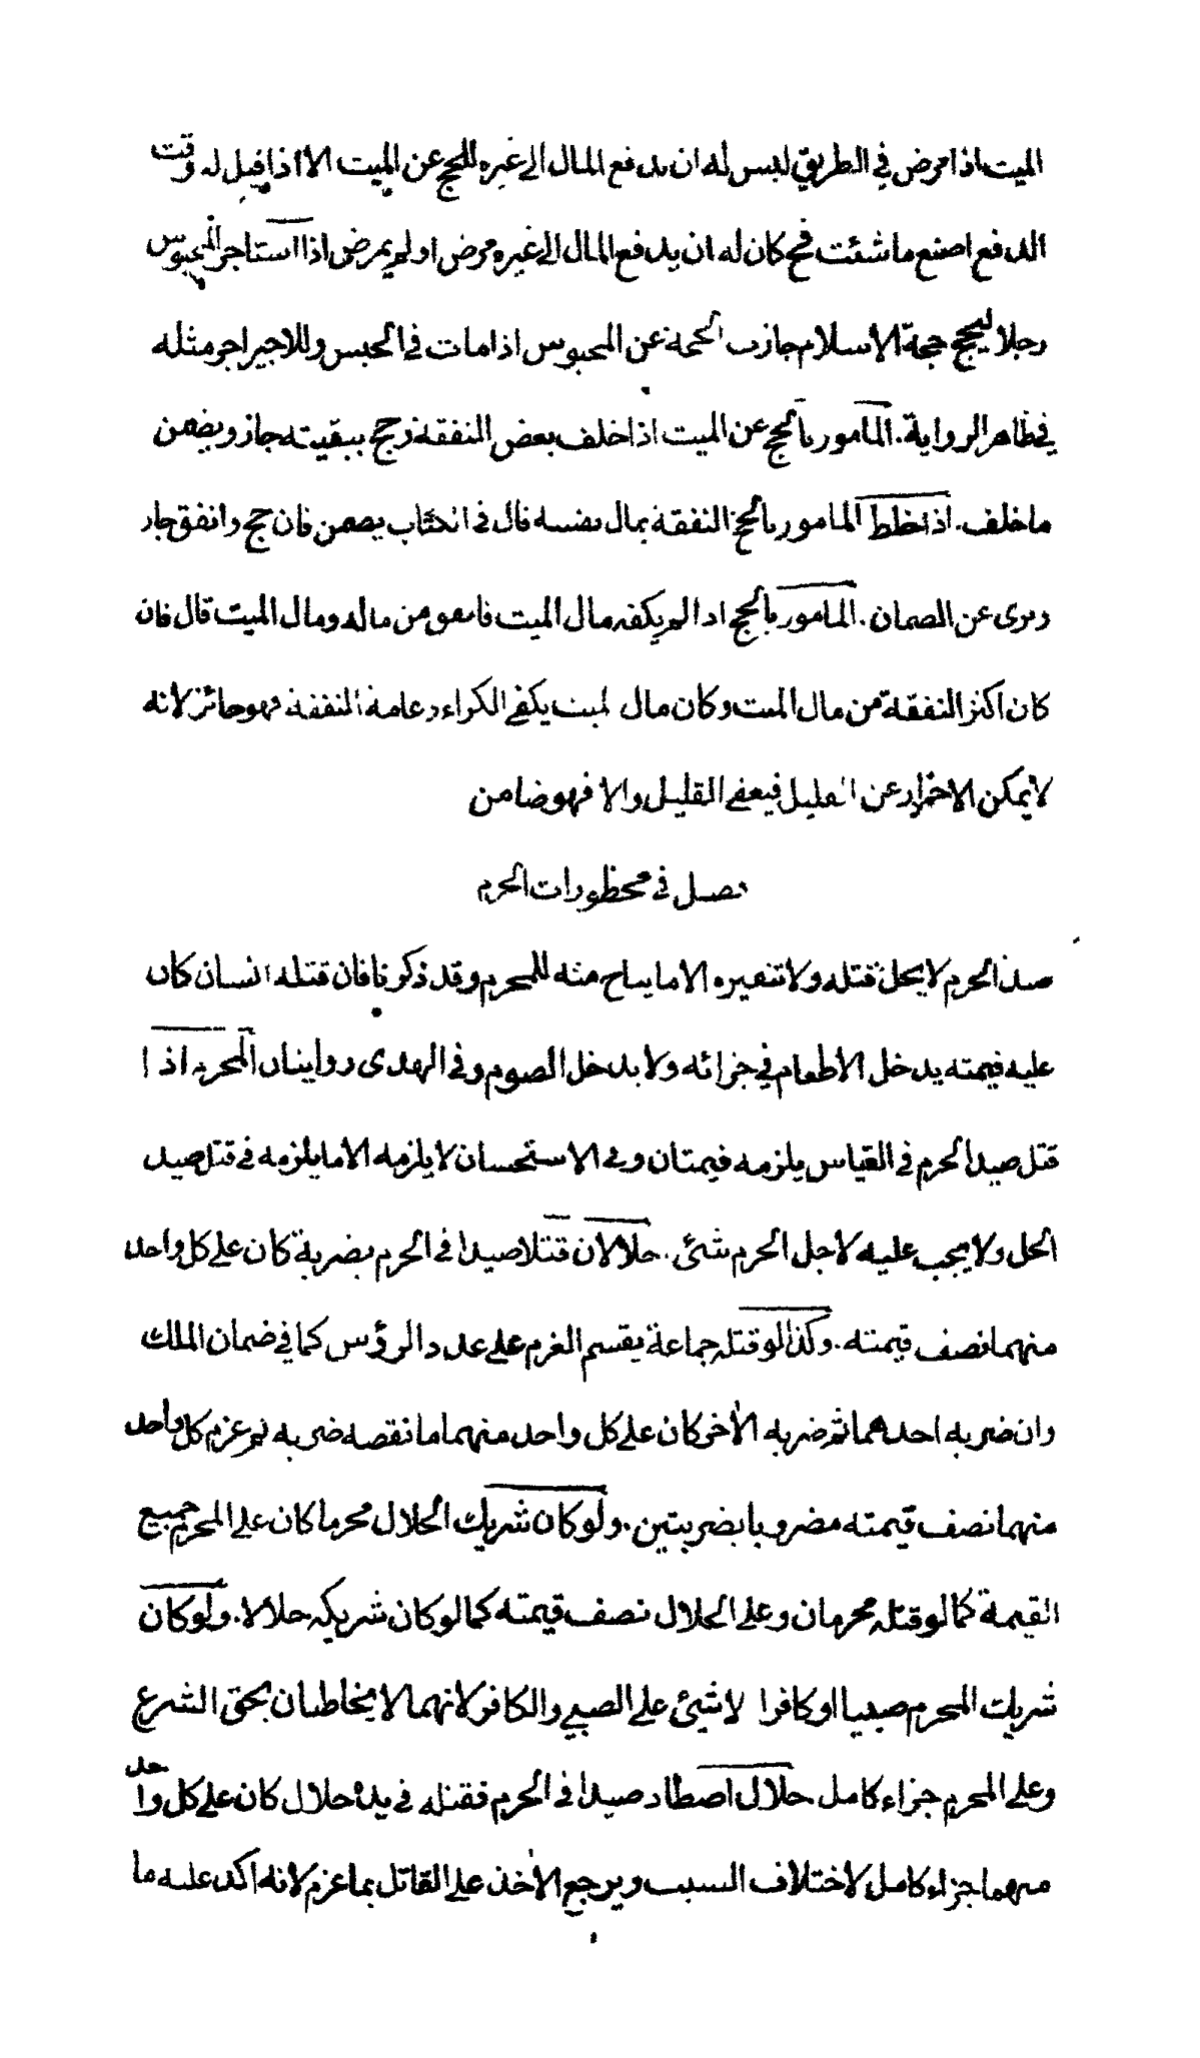 الميت اذا مرض في الطريق ليس له ان يدفع المال الى غيره للحج عن الميت الا اذا قيل له وقت
الدفع اصنع ما شئت فح كان له ان يدفع المال الى غيره مرض او لم يمرض اذا استاجر المحبوس
رجلا ليحج حجة الاسلام جازت الحجة عن المحبوس اذا مات في الحبس وللاجير اجر مثله
في ظاهر الرواية . المامور بالحج عن الميت اذا خلف بعض النفقة وحج ببقيته جاز ويضمن
ما خلف . اذا خلط المامور بالحج النفقة بمال نفسه قال في الكتاب يضمن فان حج وانفق جاز
وبرئ عن الضمان . المامور بالحج اذا لم يكفه مال الميت فانفق من ماله ومال الميت قال فان
كان اكثر النفقة من مال الميت وكان مال الميت يكفي الكراء وعامة النفقة فهو جائز لانه
لا يمكن الاحتراز عن القليل فيعفي القليل والا فهو ضامن
فصل في محظورات الحرم
صيد الحرم لا يحل قتله ولا تنفيره الا ما يباح مثله للمحرم وقد ذكرنا فان قتله انسان كان
عليه قيمته يدخل الاطعام في جزائه ولا يدخل الصوم وفي الهدى روايتان المحرم اذا
قتل صيد الحرم في القياس يلزمه قيمتان وفي الاستحسان لا يلزمه الا ما يلزمه في قتل صيد
الحل ولا يجب عليه لاجل الحرم شئ . حلالان قتلا صيدا في الحرم بضربة كان على كل واحد
منهما نصف قيمته . وكذا لو قتله جماعة يقسم الغرم على عدد الرؤس كما في ضمان الملك
وان ضربه احدهما ثم ضربه الآخر كان على كل واحد منهما ما نقصه ضربه ثم غرم كل واحد
منهما نصف قيمته مضروبا بضربتين . ولو كان شريك الحلال محرما كان على المحرم جميع
القيمة كما لو قتله محرمان وعلى الحلال نصف قيمته كما لو كان شريكه حلالا . ولو كان
شريك المحرم صبيا او كافرا لا شئ على الصبي والكافر لانهما لا يخاطبان بحق الشرع
وعلى المحرم جزاء كامل حلال اصطاد صيدا في الحرم فقتله في يده حلال كان على كل واحد
منهما جزاء كامل لاختلاف السبب ويرجع الآخذ على القاتل بما غرم لانه اكد عليه ما